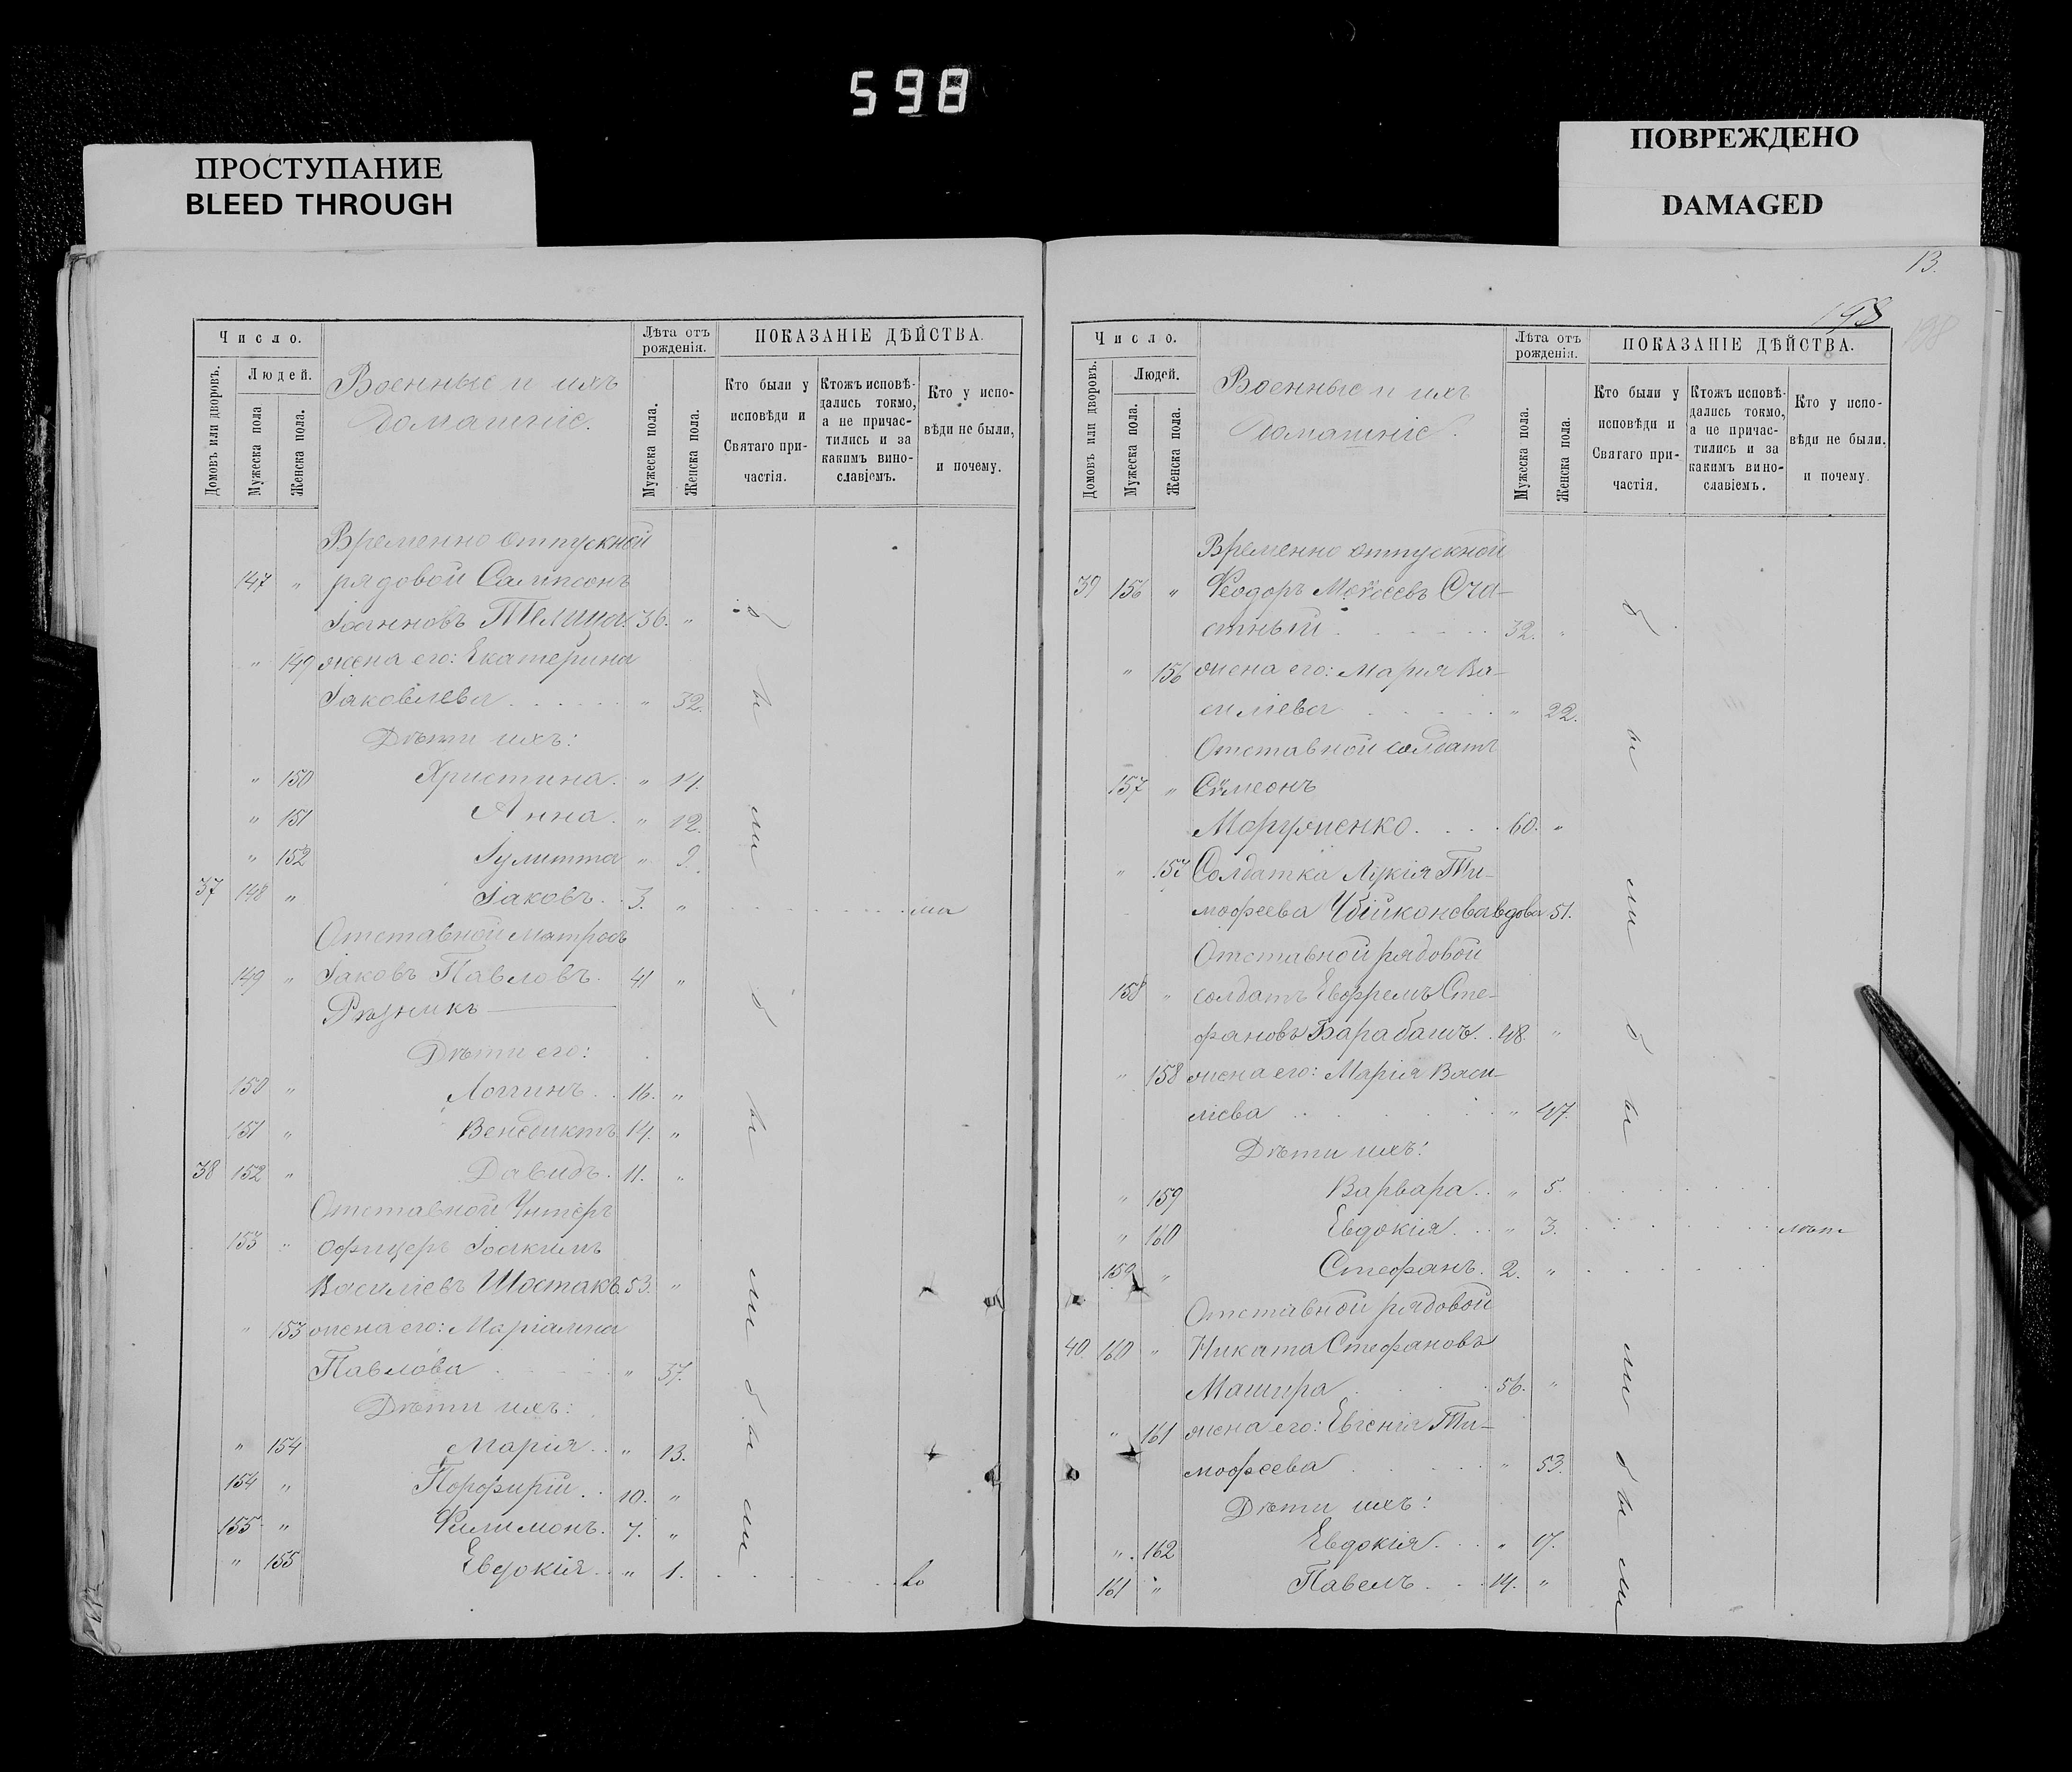 598
ПРОСТУПАНИЕ
BLEED THROUGH
ПОВРЕЖДЕНО
DAMAGED
Число.
Людей.
Домовъ или дворовъ.
Мужеска пола
Женска пола.
Военные и ихъ
домашніе.
Лѣта отъ
рожденія.
Мужеска пола.
Женска пола.
ПОКАЗАНІЕ ДѢЙСТВА.
Кто были у
исповѣди и
Святаго при-
частія.
Ктожъ исповѣ-
дались токмо,
а не причас-
тились и за
какимъ вино-
славіемъ.
Кто у испо-
вѣди не были,
и почему.
Временно отпускной
147 " рядовой Сампсонъ
Іоанновъ Телица. 36. "
" 149 жена его: Екатерина
Іаковлева " 32.
Дѣти ихъ:
" 150 Христина. " 14.
" 151 Анна. " 12.
" 152 Іулитта " 9.
37 148 " Іаковъ. 3. "
Отставной матросъ
149 " Іаковъ Павловъ. 41 "
Рѣзникъ
Дѣти его:
150 " Логгинъ. 16. "
151 " Венедиктъ 14. "
38 152 " Давидъ. 11. "
Отставной Унтеръ
153 " офицеръ Іоакимъ
Василіевъ Шостакъ. 53. "
" 153 жена его: Маріамна
Павлова " 37.
Дѣти ихъ:
" 154 Марія. " 13.
154 " Порфирій. 10. "
155 " Филимонъ. 7. "
" 155 Евдокія. " 1. во
были
были
были
13.
198
198
Число.
Людей.
Домовъ или дворовъ.
Мужеска пола.
Женска пола.
Военные и ихъ
домашніе.
Лѣта отъ
рожденія.
Мужеска пола.
Женска пола.
ПОКАЗАНІЕ ДѢЙСТВА.
Кто были у
исповѣди и
Святаго при-
частія.
Ктожъ исповѣ-
дались токмо,
а не причас-
тились и за
какимъ вино-
славіемъ.
Кто у испо-
вѣди не были.
и почему.
Временно отпускной
39 156 " Ѳеодоръ Моѵсеевъ Сча-
стный 32. "
" 156 жена его: Марія Ва-
силіева " 22.
Отставной солдатъ
157 " Сѵмеонъ
Моргуненко. 60. "
" 157 Солдатка Лукія Ти-
моѳеева вдова 51.
Отставной рядовой
158 " солдатъ Евѳремъ Сте-
фановъ Барабашъ. 48. "
" 158 жена его: Марія Васи-
ліева " 47.
Дѣти ихъ:
" 159 Варвара. " 5.
" 160 Евдокія. " 3. лѣт
159 " Стефанъ. 2. "
Отставной рядовой
40. 160 " Никита Стефановъ
Машира 56. "
" 161 жена его: Евгенія Ти-
моѳеева " 53.
Дѣти ихъ:
" 162 Евдокія. " 17.
161 " Павелъ. 14. "
были
были
были